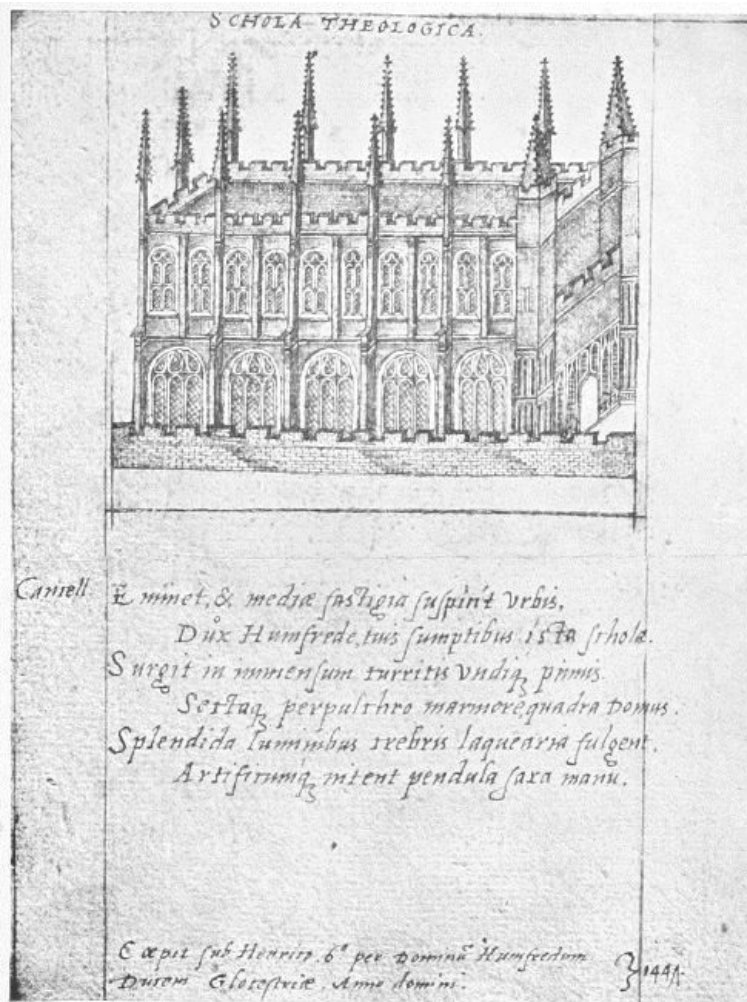 SCHOLA THEOLOGICA.
Cancell.
Eminet, & mediæ fastigia suspicit vrbis,
Dux Humfrede, tuis sumptibus ista schola.
Surgit in immensum turritis vndiq pinnis
Sectaq perpulchro marmore, quadra domus.
Splendida luminibus crebris laquearia fulgent.
Artificumq nitent pendula saxa manu.
Cœpit sub Henrico. 6º per Dominū Humfredum
Ducem Glocestriæ. Anno domini.